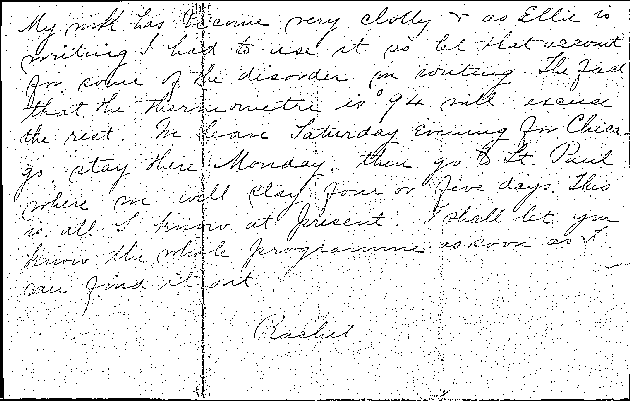 My ink has become very clotty & as Ellie is
writing I had to use it so let that account
for some of the disorder in writing. The fact
that the thermometre is 94 will excuse
the rest. We leave Saturday Evening for Chica-
go stay there Monday. then go to St. Paul
where we will stay four or five days. This
is all I know at present. I shall let you
know the whole programme as soon as I
can find it out
Rachel